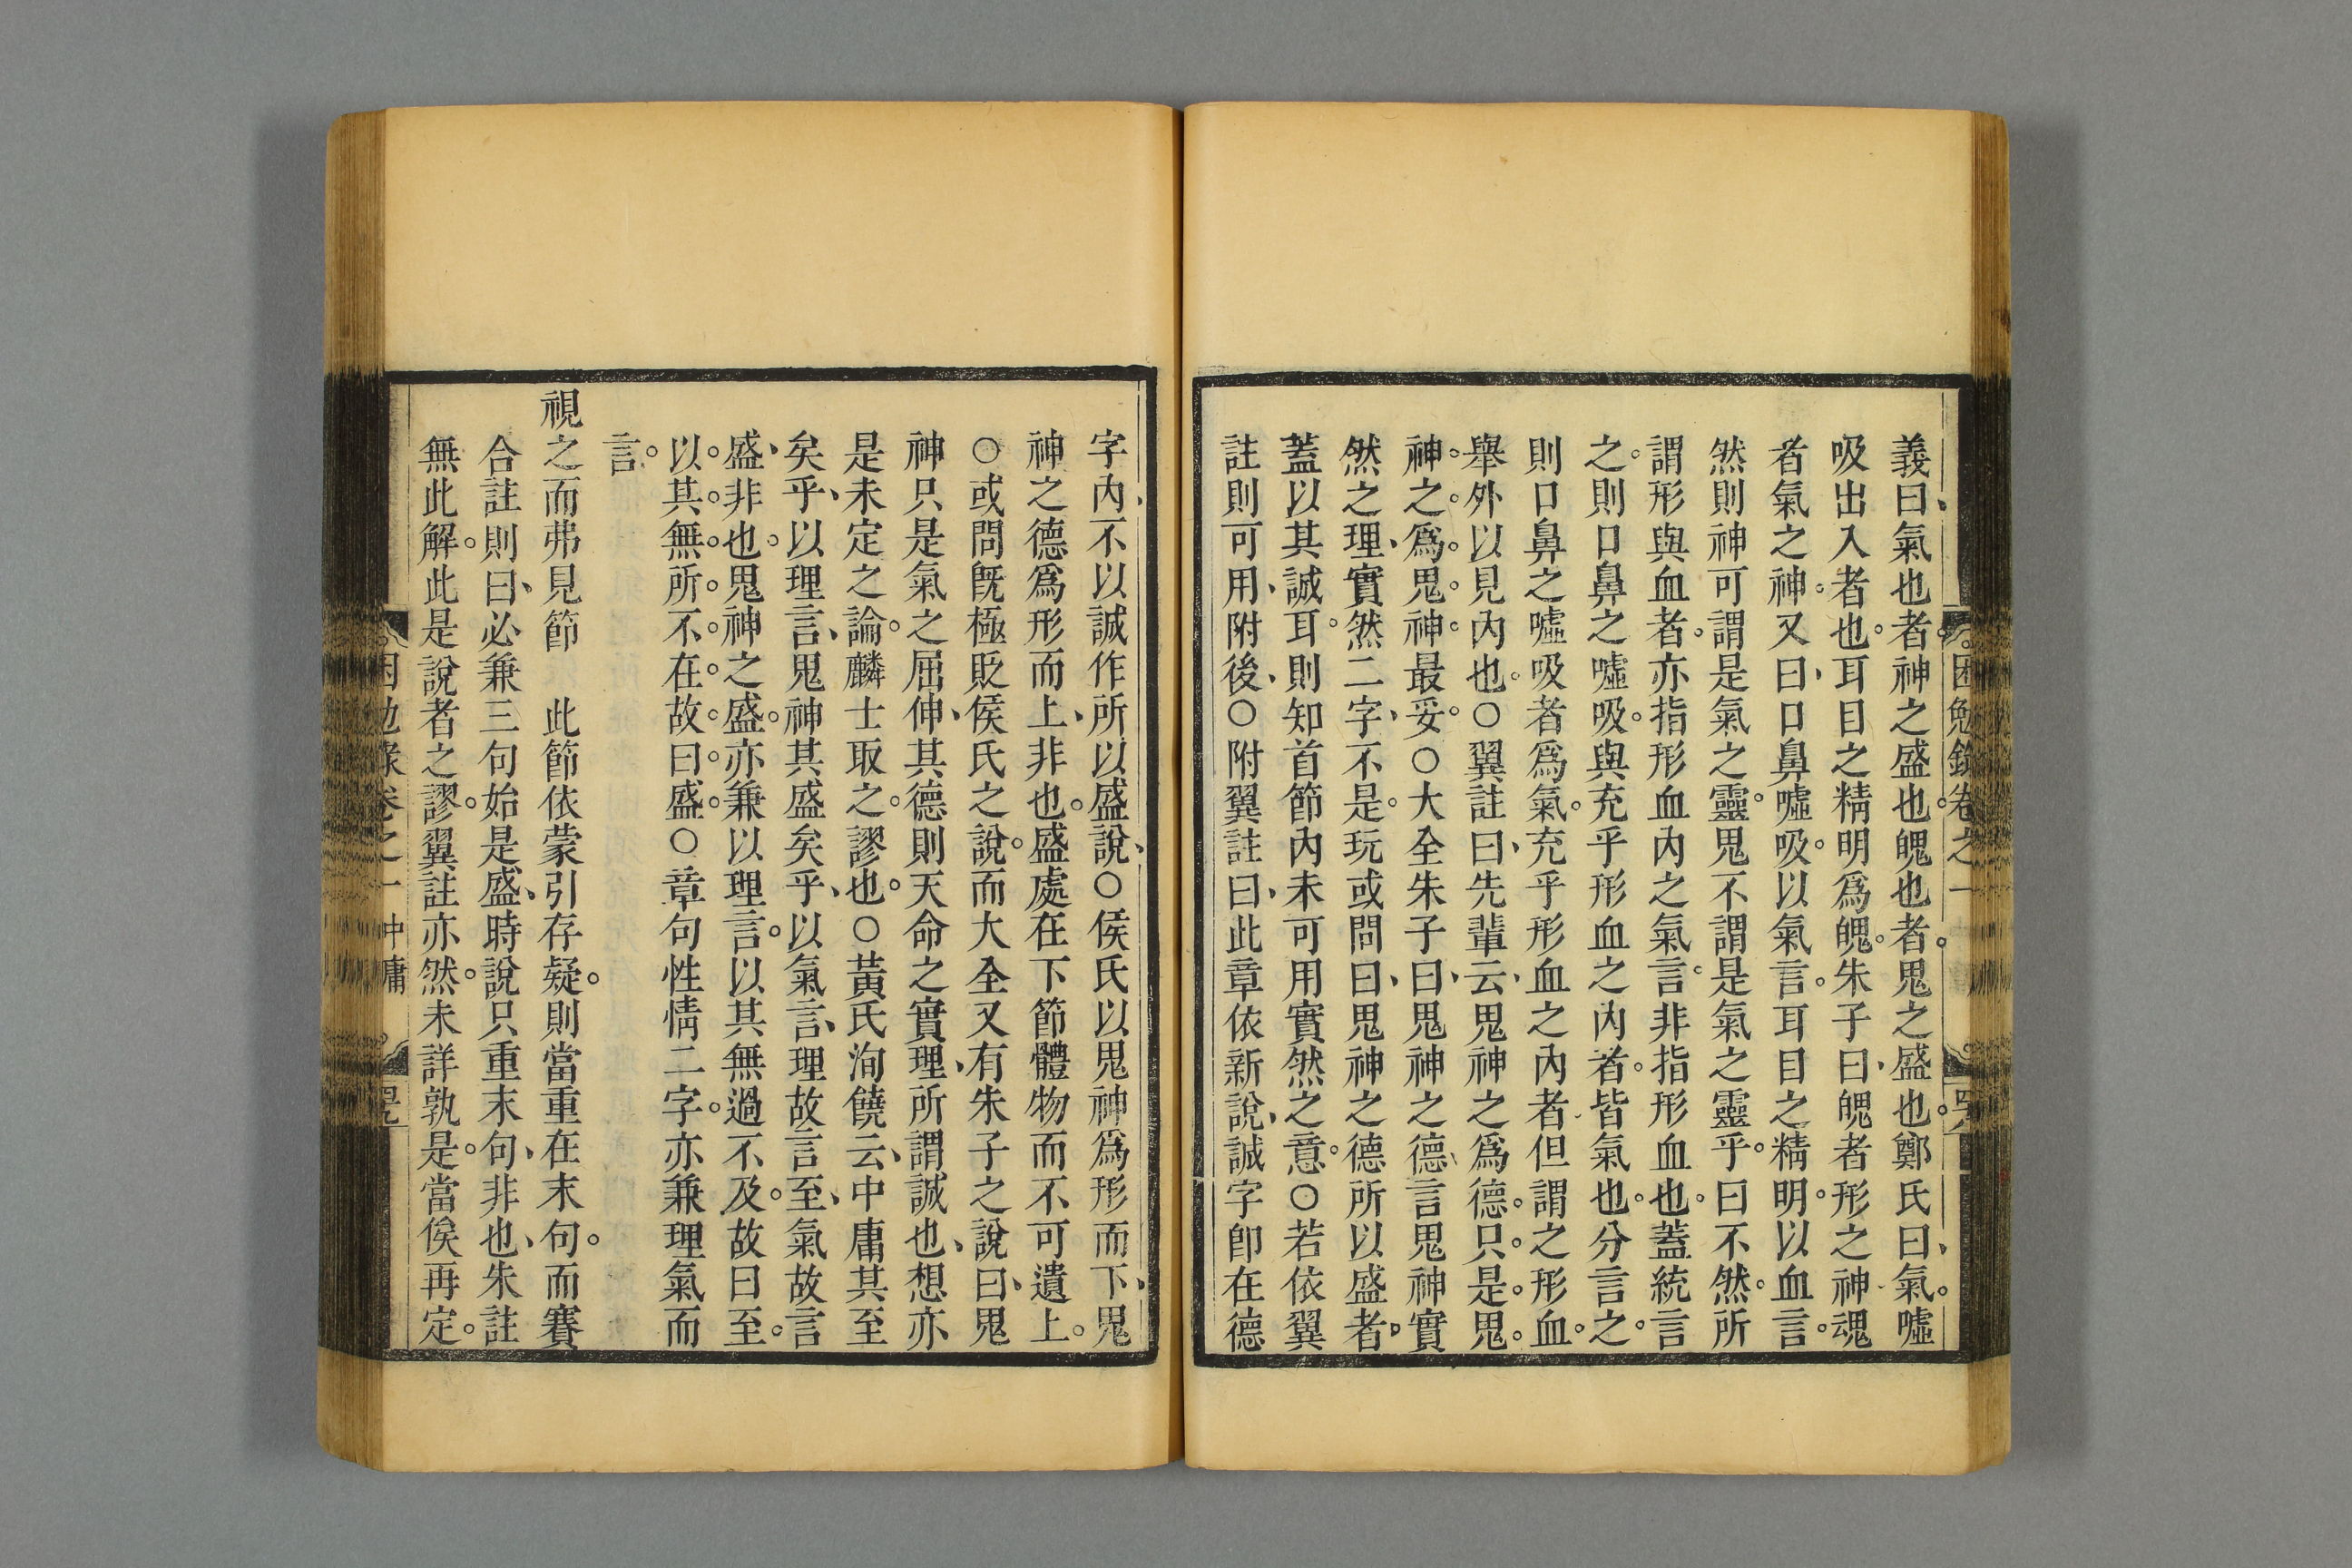 困勉錄卷之一
義曰、氣也者。神之盛也。魄也者。鬼之盛也。鄭氏曰、氣。噓
吸出入者也。耳目之精明爲魄。朱子曰、魄者形之神魂
者氣之神。又曰、口鼻噓吸。以氣言。耳目之精明。以血言。
然則神可謂是氣之靈。鬼不謂是氣之靈乎。曰不然。所
謂形與血者。亦指形血內之氣言。非指形血也。蓋統言
之。則口鼻之噓吸。與充乎形血之內者。皆氣也。分言之。
則口鼻之噓吸者爲氣。充乎形血之內者但謂之形血。
舉外以見內也。○翼註曰、先輩云、鬼神之爲德。只。是。鬼。
神。之。爲。鬼。神。最妥。○大全朱子曰、鬼神之德、言鬼神實
然之理、實然二字、不是。玩或問曰、鬼神之德所以盛者、
蓋以其誠耳。則知首節內未可用實然之意。○若依翼
註則可用、附後、○附翼註曰、此章依新說、誠字卽在德
字內、不以誠作所以盛說、○侯氏以鬼神爲形而下、鬼
神之德爲形而上、非也。盛處在下節體物而不可遺上。
○或問旣極貶侯氏之說。而大全又有朱子之說曰、鬼
神只是氣之屈伸、其德則天命之實理、所謂誠也、想亦
是未定之論。麟士取之謬也。○黃氏洵饒云、中庸其至
矣乎、以理言、鬼神其盛矣乎、以氣言、理故言至、氣故言
盛、非也。鬼神之盛。亦兼以理言。以其無過不及。故曰至。
以。其。無。所。不。在。故。曰。盛。○章句性情二字。亦兼理氣而
言。
視之而弗見節　此節依蒙引存疑。則當重在末句。而賽
合註則曰、必兼三句始是盛、時說只重末句、非也、朱註
無此解。此是說者之謬。翼註亦然。未詳孰是。當俟再定。
困勉錄卷之一　中庸